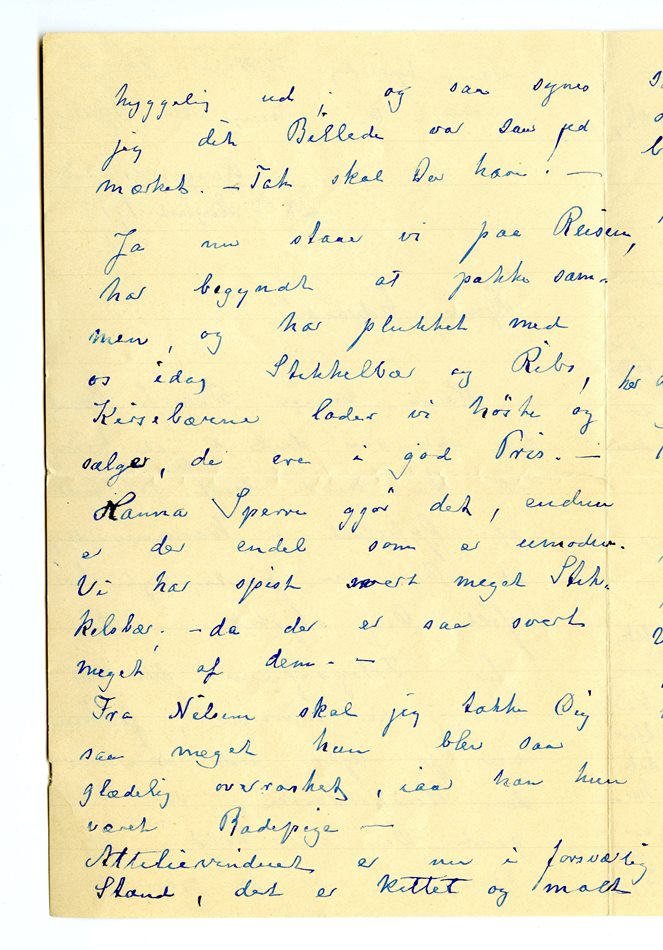 hyggelig ud, og saa synes
jeg det Billede var saa ud
mærket. – Tak skal Du have! –
Ja nu staar vi paa Reisen,
har begyndt at pakke sam-
men, og har plukket med
os idag Stikkelbær og Ribs,
Kirsebærene lader vi høste og
sælger, de ere i god Pris. –
Hanna Sperre gjør det, endnu
er der endel som er umodne.
Vi har spist svert meget Stik-
kelsbær. – da der er saa svert
meget af dem. –
Fra Nilsen skal jeg takke Dig
saa meget hun blev saa
glædelig overrasket, iaar kan hun
været Badepige –
Attelievinduet er nu i forsvarlig
Stand, det er kittet og malt